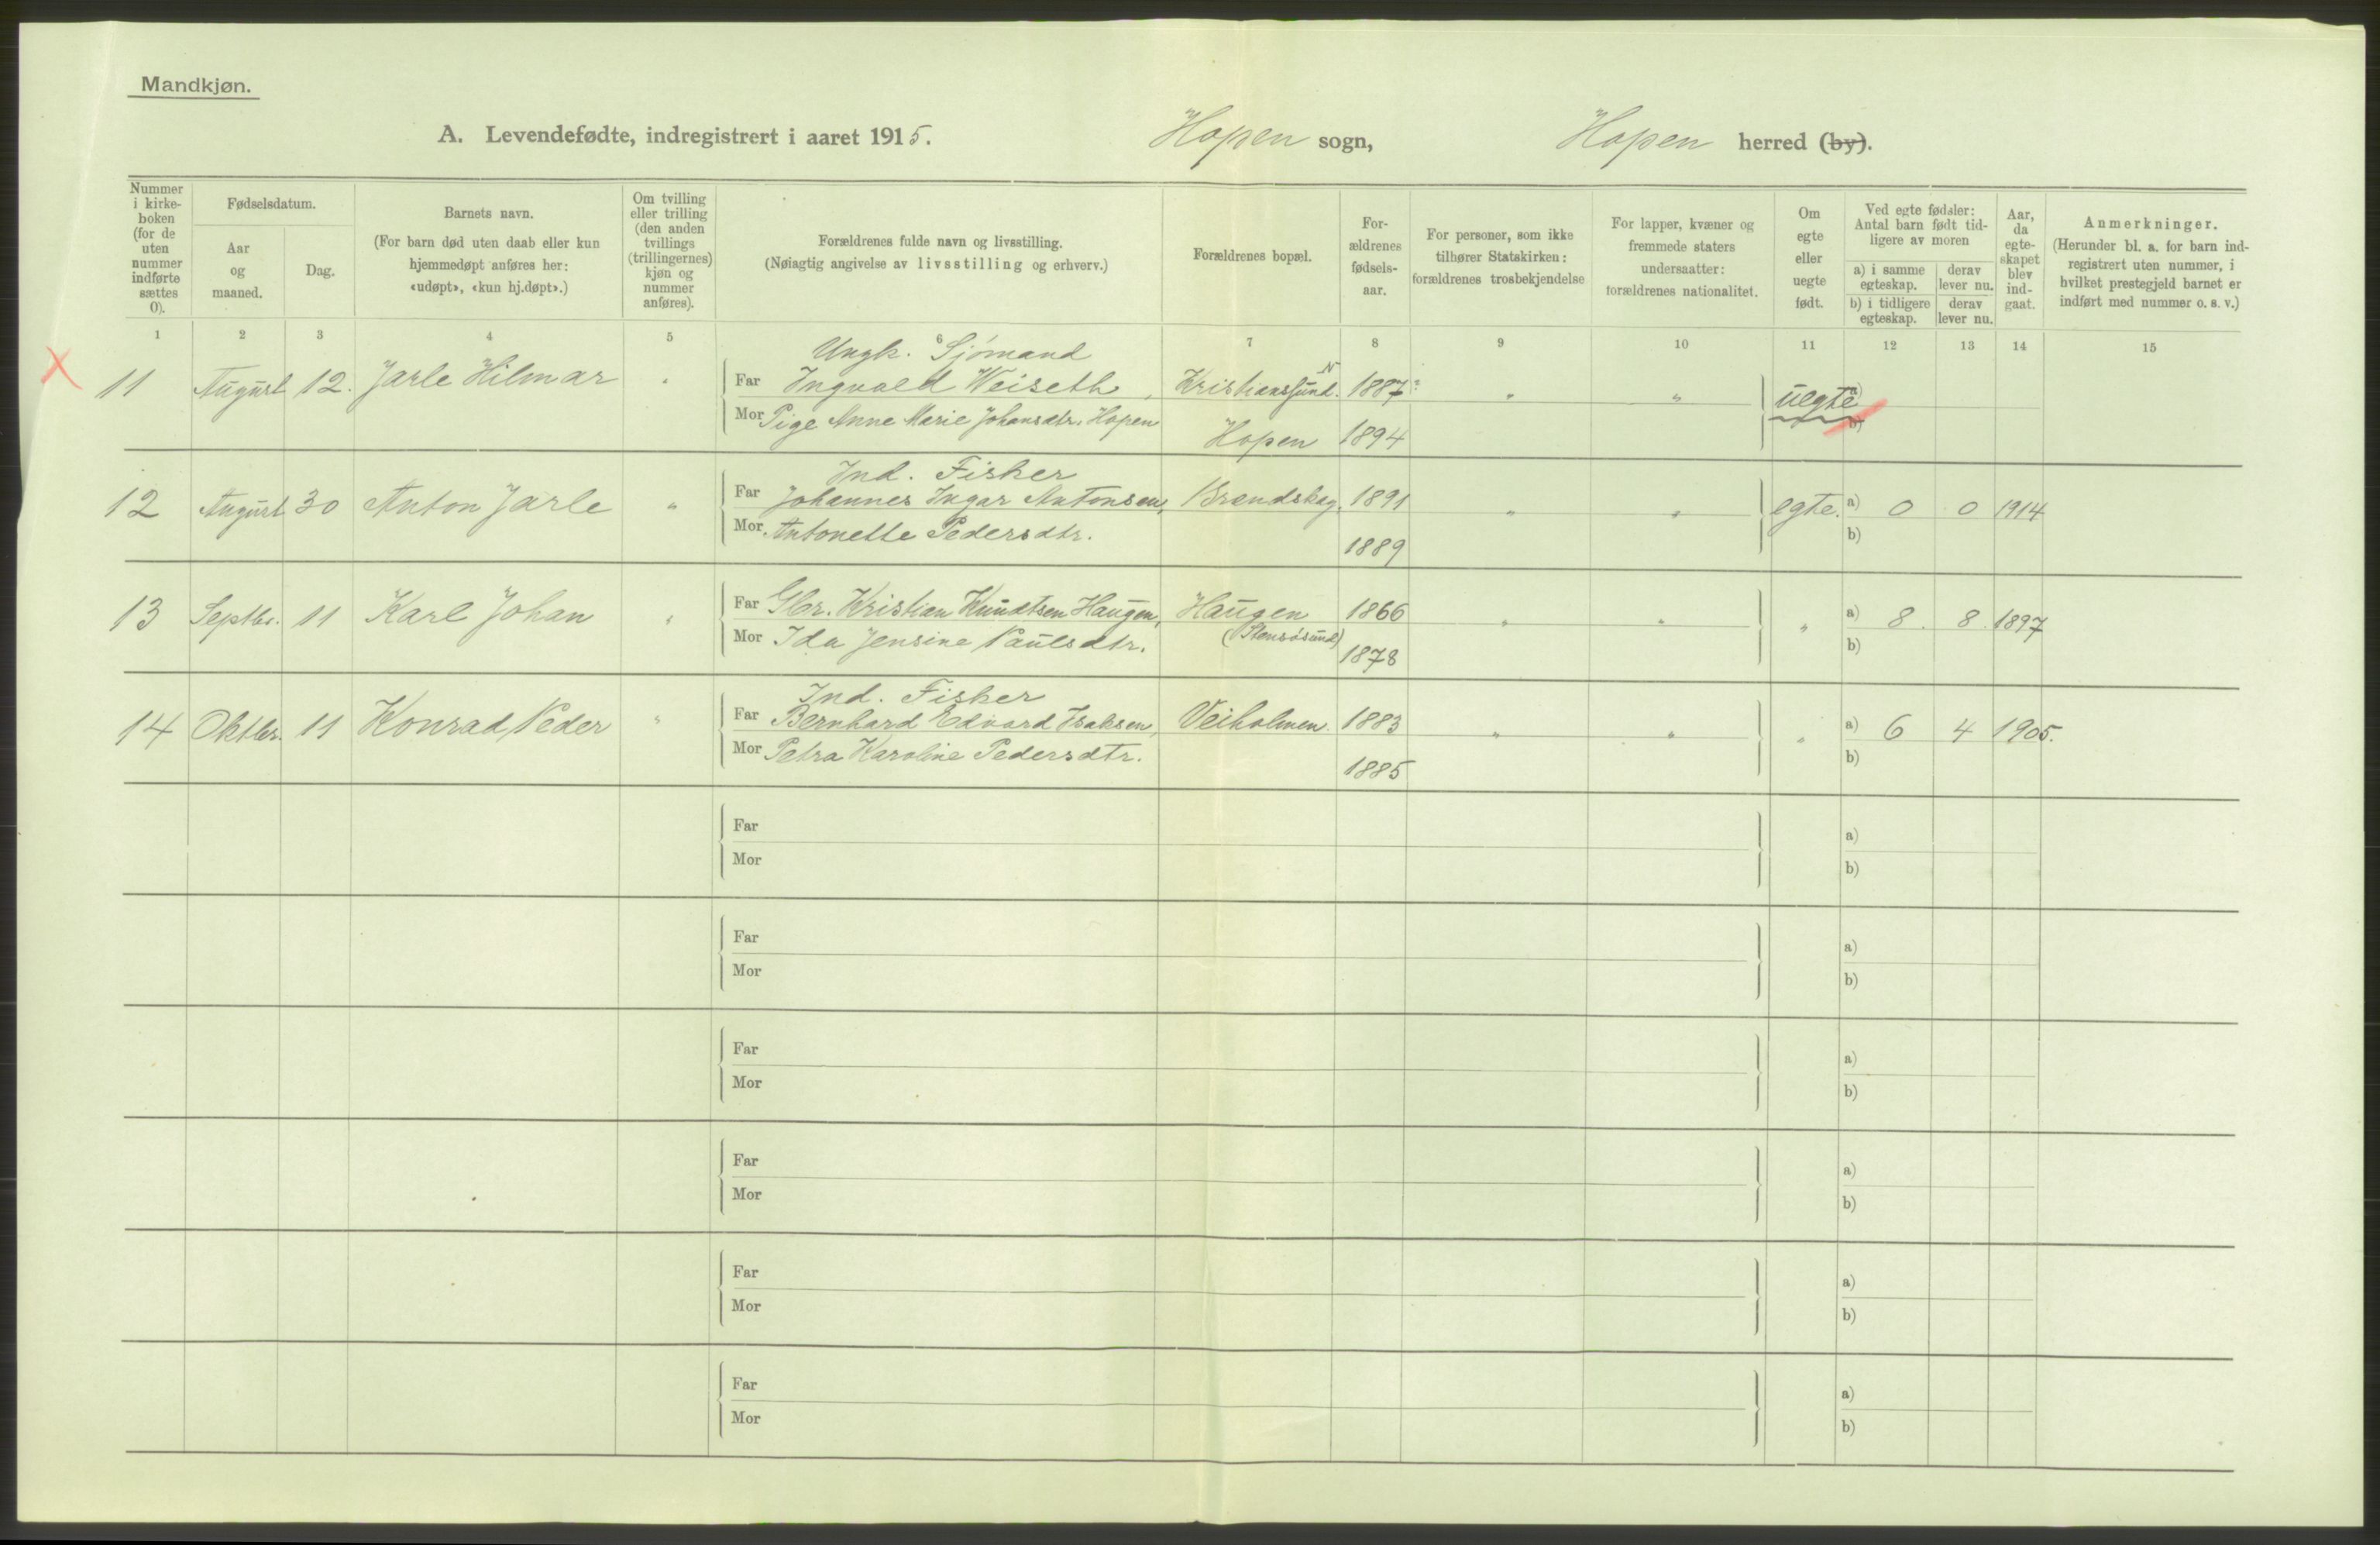 Mandkjøn.
A. Levendefødte, indregistrert i aaret 1915. Hopen sogn, Hopen herred (by).
Nummer i kirke-boken (for de uten nummer indførte sættes 0).
Fødselsdatum.
Aar og maaned.
Dag.
Barnets navn.
(For barn død uten daab eller kun hjemmedøpt anføres her: «udøpt», «kun hj.døpt».)
Om tvilling eller trilling (den anden tvillings (trillingernes) kjøn og nummer anføres).
Forældrenes fulde navn og livsstilling.
(Nøiagtig angivelse av livsstilling og erhverv.)
Forældrenes bopæl.
For-ældrenes fødsels-aar.
For personer, som ikke tilhører Statskirken: forældrenes trosbekjendelse
For lapper, kvæner og fremmede staters undersaatter: forældrenes nationalitet.
Om egte eller uegte født.
Ved egte fødsler: Antal barn født tid-ligere av moren
a) i samme egteskap.
derav lever nu.
b) i tidligere egteskap.
derav lever nu.
Aar, da egte-skapet blev ind-gaat.
Anmerkninger.
(Herunder bl. a. for barn ind-registrert uten nummer, i hvilket prestegjeld barnet er indført med nummer o. s. v.)
1 2 3 4 5 6 7 8 9 10 11 12 13 14 15
Ungk. Sjömand
11 August 12. Jarle Hilmar " Far Ingvald Weiseth, Kristianssund N. 1887? " " uegte a)
Mor Pige Anne Marie Johansdtr. Hopen Hopen 1894 b)
Ind. Fisker
12 August 30 Anton Jarle " Far Johannes Ingar Antonsen, Brandskag. 1891 " " egte. a) 0 0 1914
Mor Antonette Pedersdtr. 1889 b)
13 Septbr. 11 Karl Johan " Far Gbr. Kristian Knudtsen Haugen, Haugen 1866 " " " a) 8. 8. 1897
Mor Ida Jensine Paulsdtr. (Stensösund) 1878 b)
Ind. Fisker
14 Oktbr. 11 Konrad Peder " Far Bernhard Edvard Isaksen, Veiholmen. 1883 " " " a) 6 4 1905.
Mor Petra Karoline Pedersdtr. 1885 b)
Far a)
Mor b)
Far a)
Mor b)
Far a)
Mor b)
Far a)
Mor b)
Far a)
Mor b)
Far a)
Mor b)